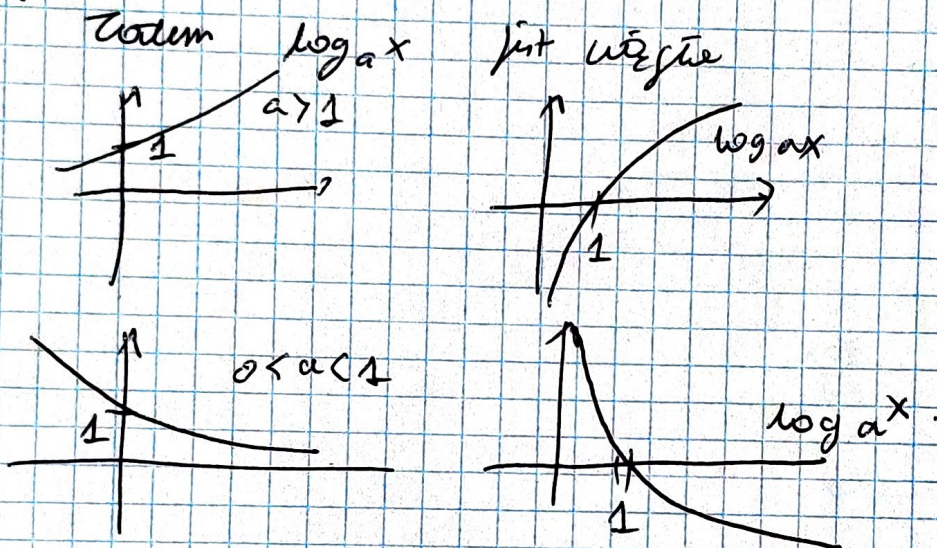 Zatem log_a x jest ciągłe
a > 1
1
log ax
1
0 < a < 1
1
log a^x
1